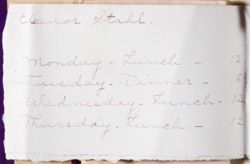 Eleanor Stahl.
Monday - Lunch - 12.
Tuesday - Dinner - 6
Wednesday - Lunch - 12
Thursday - Lunch - 12